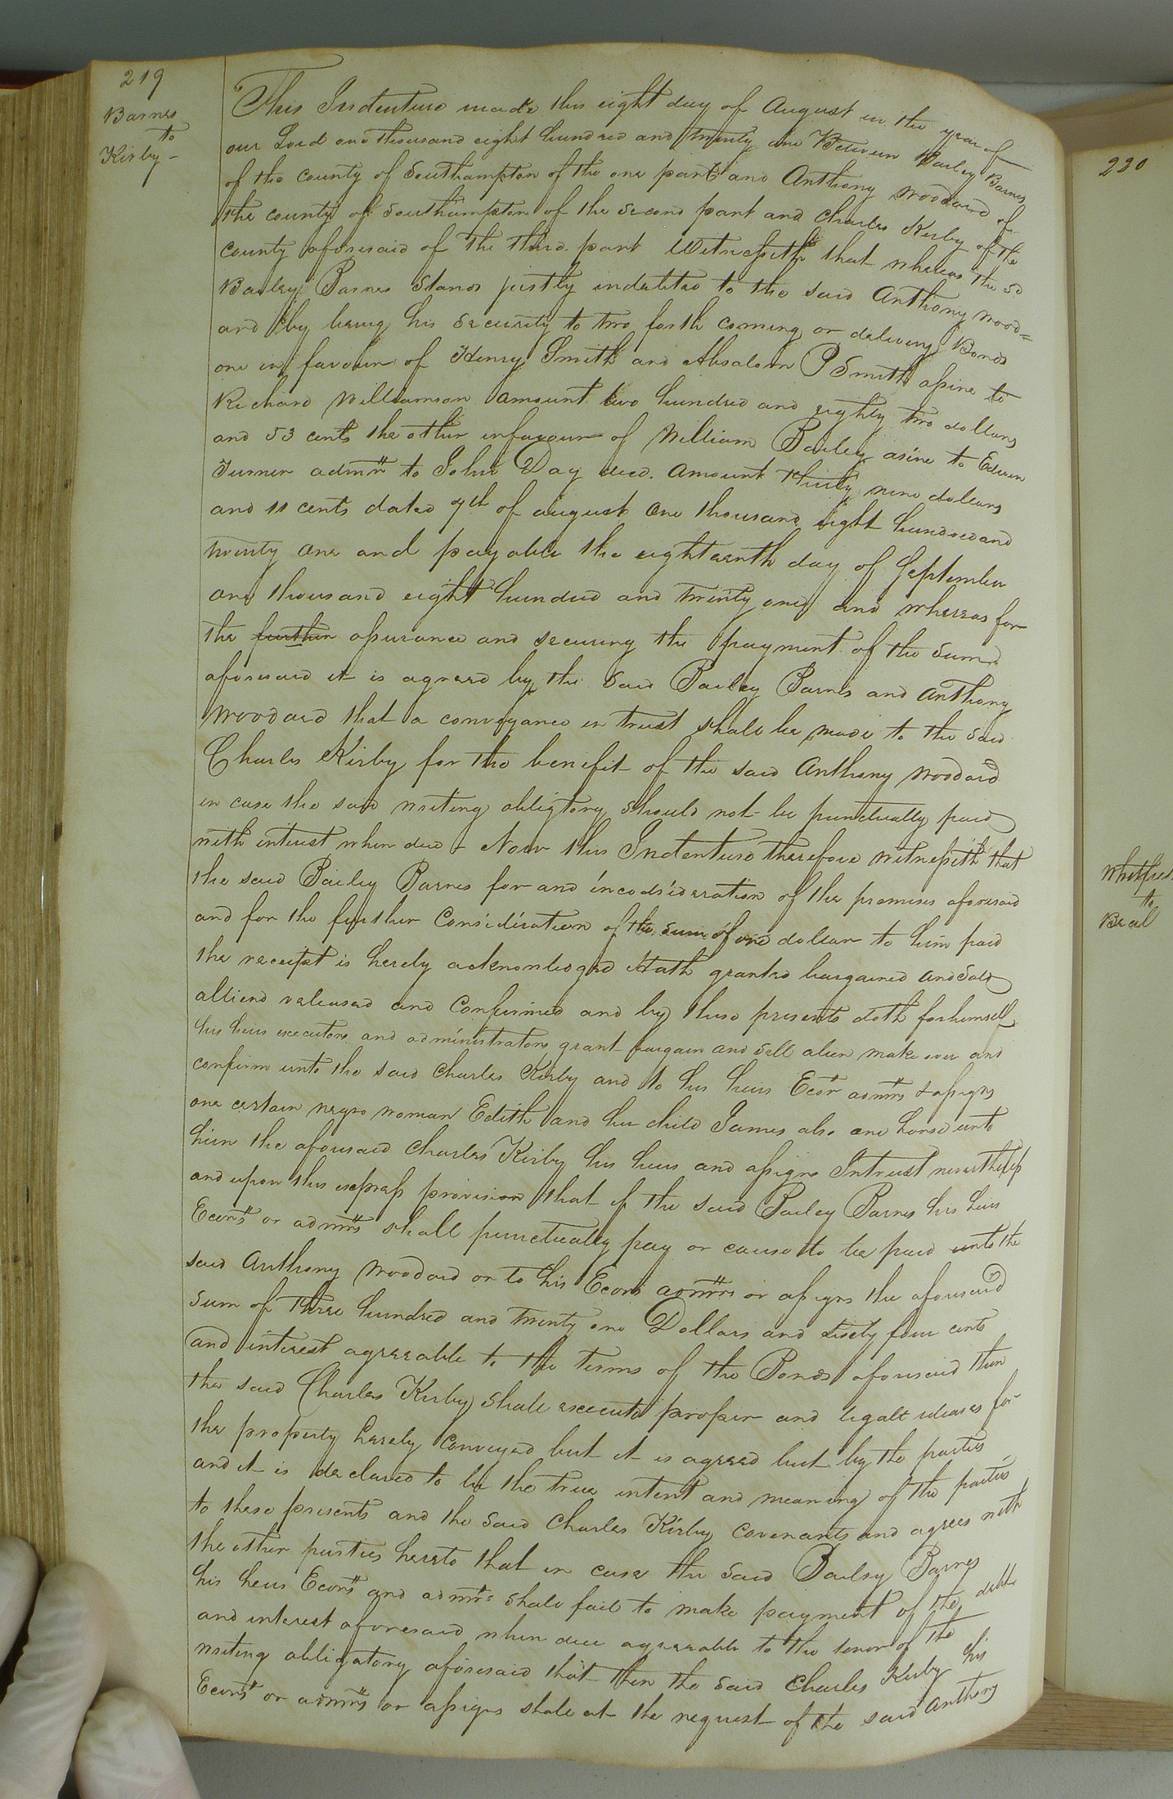 219
Barnes
to
Kirby -
This Indenture made this eight day of August in the year of
our Lord one thousand eight hundred and twenty one Between Bailey Barnes
of the county of Southampton of the one part and Anthony Woodard of
the county of Southampton of the second part and Charles Kirby of the
county aforesaid of the third part Witnesseth that whereas the sd
Bailey Barnes Stands justly indebted to the said Anthony Wood=
ard by being his Security to two forth coming or delivery Bonds
one in favour of Henry Smith and Absalom P Smith assine to
Richard Williamson amount two hundred and eighty two dollars
and 53 cents the other infavour of William Bailey assine to Edwin
Turner admr to John Day decd. amount thirty nine dollars
and 11 cents dated 7th of august One thousand Eight hundred and
twenty one and payable the eighteenth day of September
one thousand eight hundred and twenty one and whereas for
the further assurance and securing the payment of the Sums
aforesaid it is agreed by the Said Bailey Barnes and Anthony
Woodard that a conveyance in trust shall be made to the Said
Charles Kirby for the benefit of the said Anthony Woodard
in case the said writing obligtory should not be punctually paid
with interest when due - Now this Indenture therefore witnesseth that
the said Bailey Barnes for and inconsideration of the premises aforesaid
and for the further Consideration of the sum of one dollar to him paid
the receipt is hereby acknowledged Hath granted bargained and Sold
alliend released and Confirmed and by these presents doth for himself
his heirs executors and administrators grant bargain and Sell alien make over and
confirm unto the said Charles Kirby and to his heirs Ecors admrs & assigns
one certain negro woman Edith and her child James also one horse unto
him the aforesaid Charles Kirby his heirs and assigns Intrust nevertheless
and upon this express provision that if the said Bailey Barnes his heirs
Ecors or admrs shall punctually pay or cause to be paid unto the
said Anthony Woodard or to his Ecors admrs or assigns the aforesaid
Sum of three hundred and twenty one Dollars and sixty four cents
and interest agreeable to the terms of the Bonds aforesaid then
the said Charles Kirby shall execute proper and legall releases for
the property hereby Conveyed but it is agreed but by the parties
and it is declared to be the true intent and meaning of the parties
to these presents and the said Charles Kirby Covenants and agrees with
the other parties hereto that in case the said Bailey Barnes
his heirs Ecors and admrs shall fail to make payment of the debts
and interest aforesaid when due agreeable to the tenor of the
writing obligatory aforesaid that then the said Charles Kirby his
Ecors or admrs or assigns shall at the request of the said Anthony
220
to
Beal